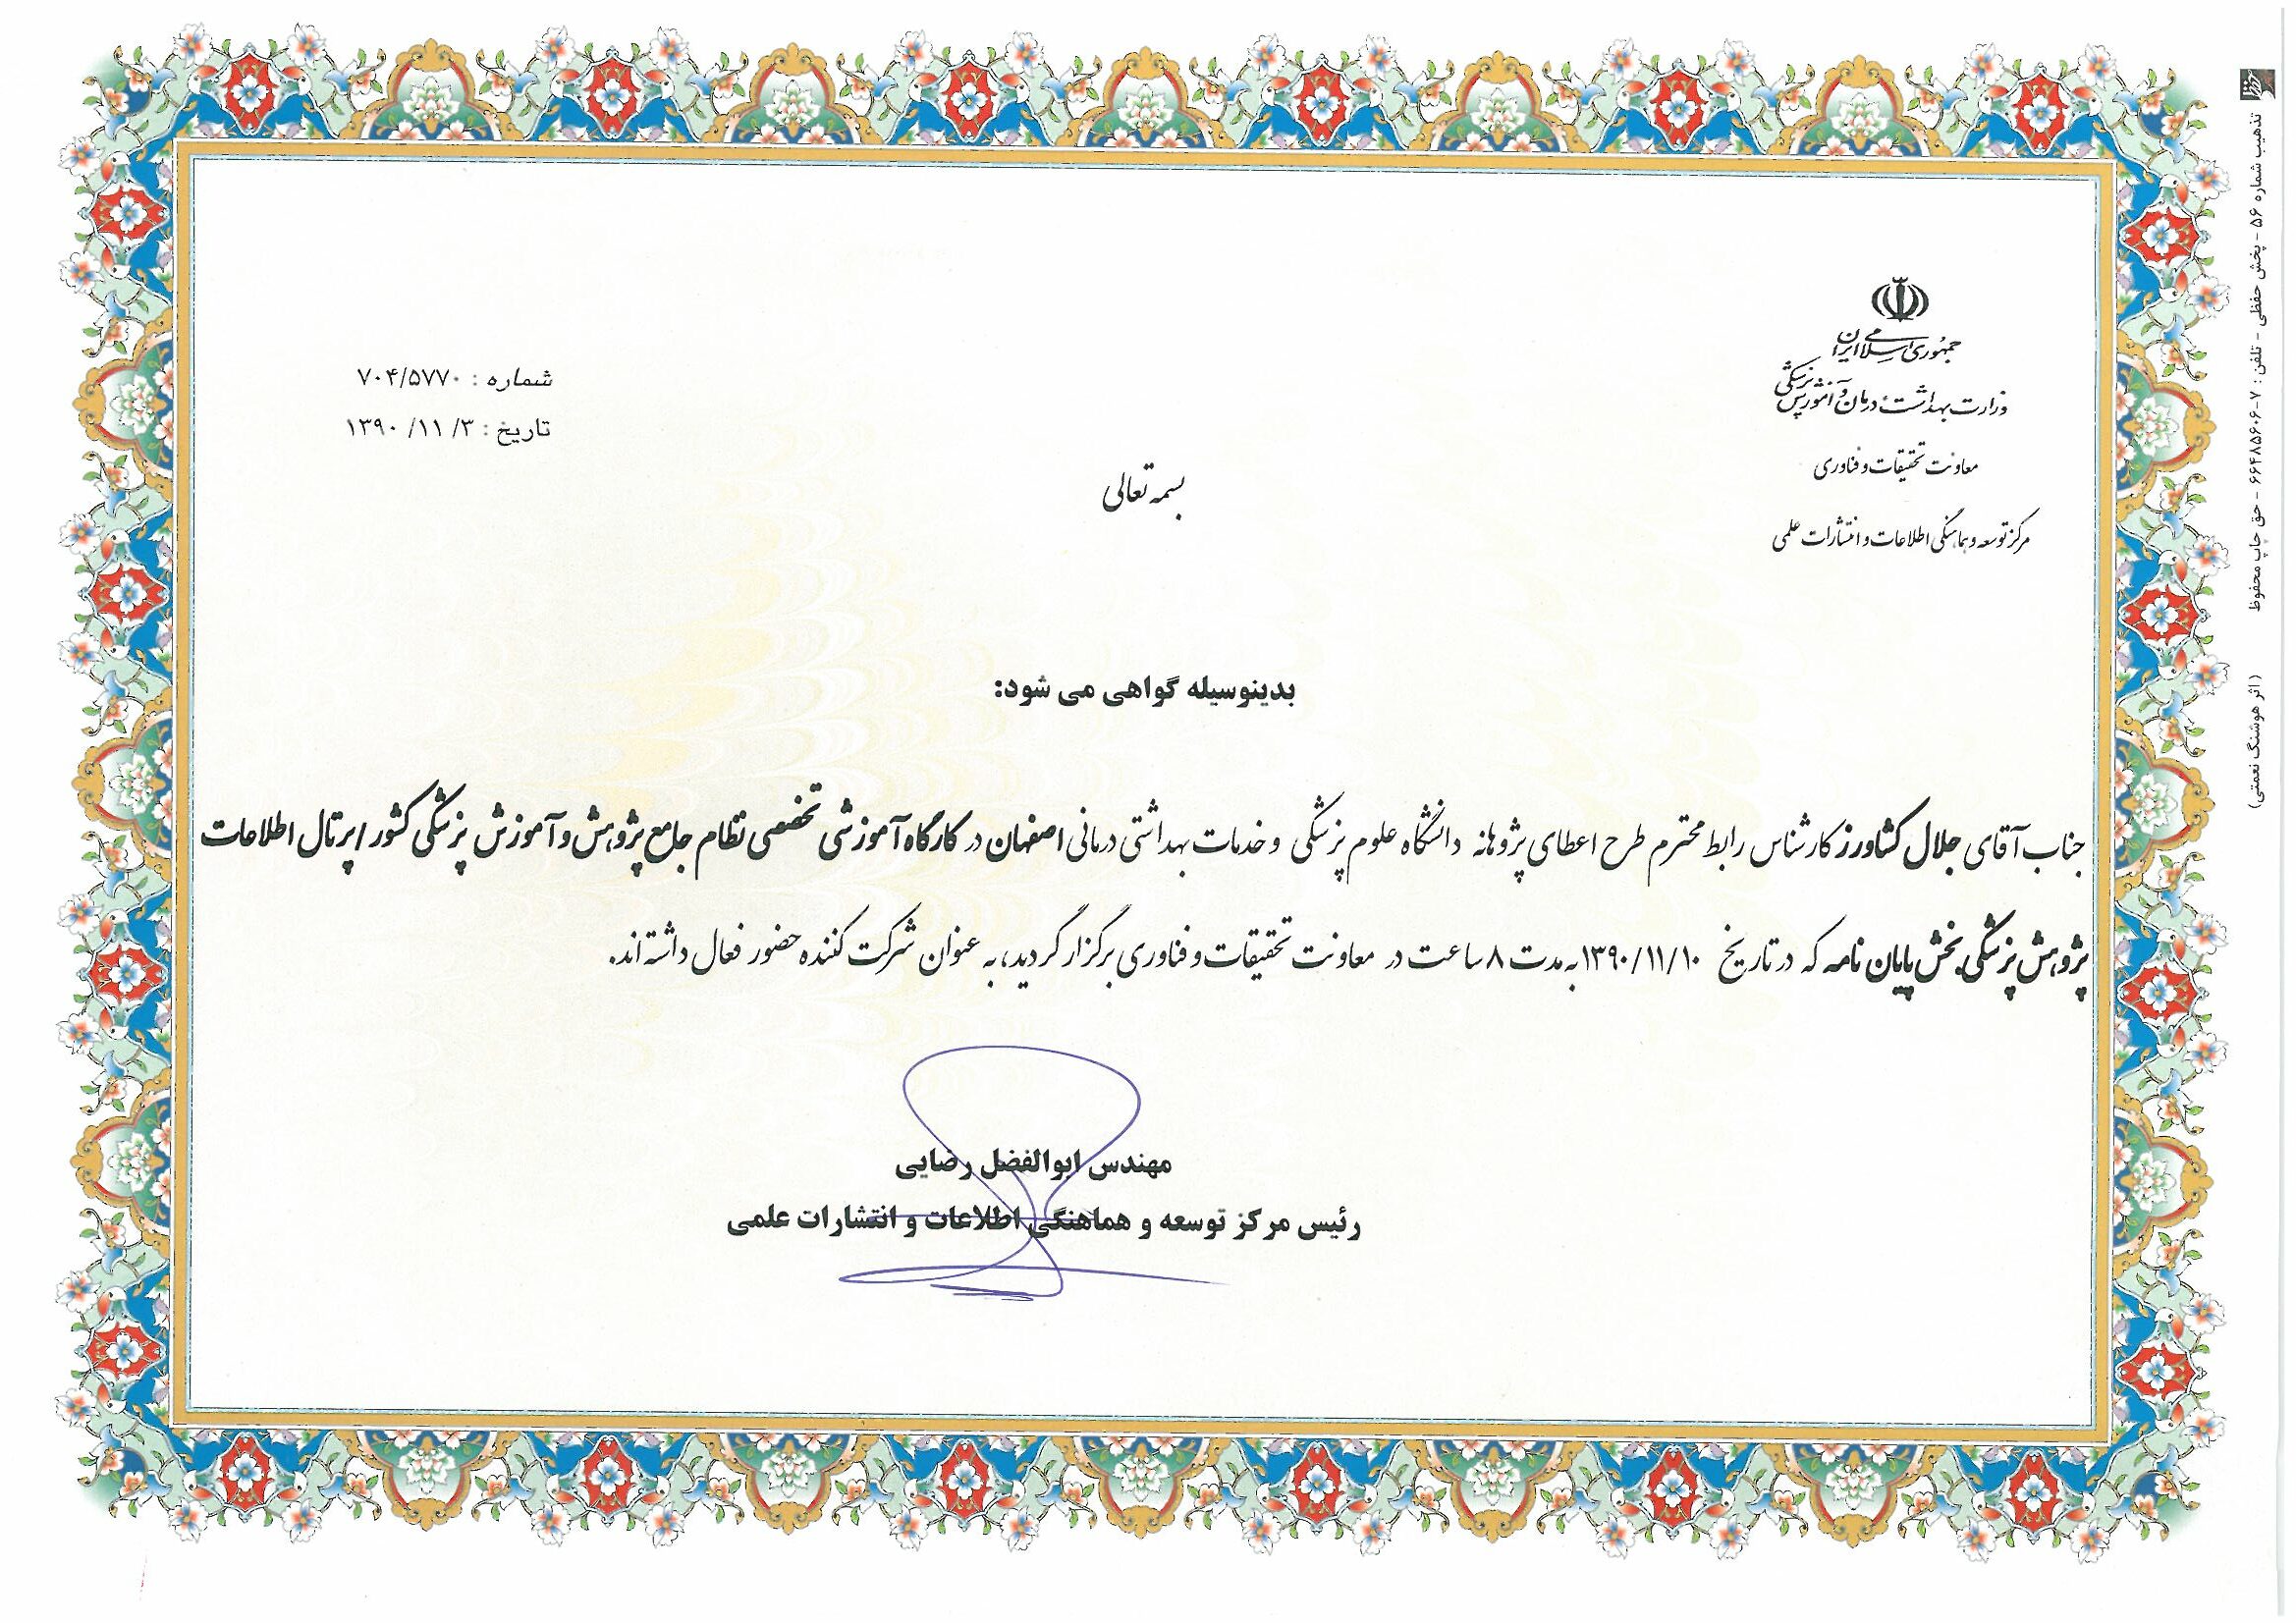 جمهوری اسلامی ایران
وزارت بهداشت، درمان و آموزش پزشکی
معاونت تحقیقات و فناوری
مرکز توسعه و هماهنگی اطلاعات و انتشارات علمی
شماره : ۷۰۴/۵۷۷۰
تاریخ : ۳/ ۱۱/ ۱۳۹۰
بسمه تعالی
بدینوسیله گواهی می شود:
جناب آقای جلال کشاورز کارشناس رابط محترم طرح اعطای پژوهانه دانشگاه علوم پزشکی و خدمات بهداشتی درمانی اصفهان در کارگاه آموزشی تخصصی نظام جامع پژوهش و آموزش پزشکی کشور / پرتال اطلاعات
پژوهش پزشکی بخش پایان نامه که در تاریخ ۱۳۹۰/۱۱/۱۰ به مدت ۸ ساعت در معاونت تحقیقات و فناوری برگزار گردید، به عنوان شرکت کننده حضور فعال داشته اند.
مهندس ابوالفضل رضایی
رئیس مرکز توسعه و هماهنگی اطلاعات و انتشارات علمی
تذهیب شماره ۵۶ - پخش حفظی - تلفن : ۷-۶۶۴۸۵۶۰۶ - حق چاپ محفوظ (اثر هوشنگ نعمتی)